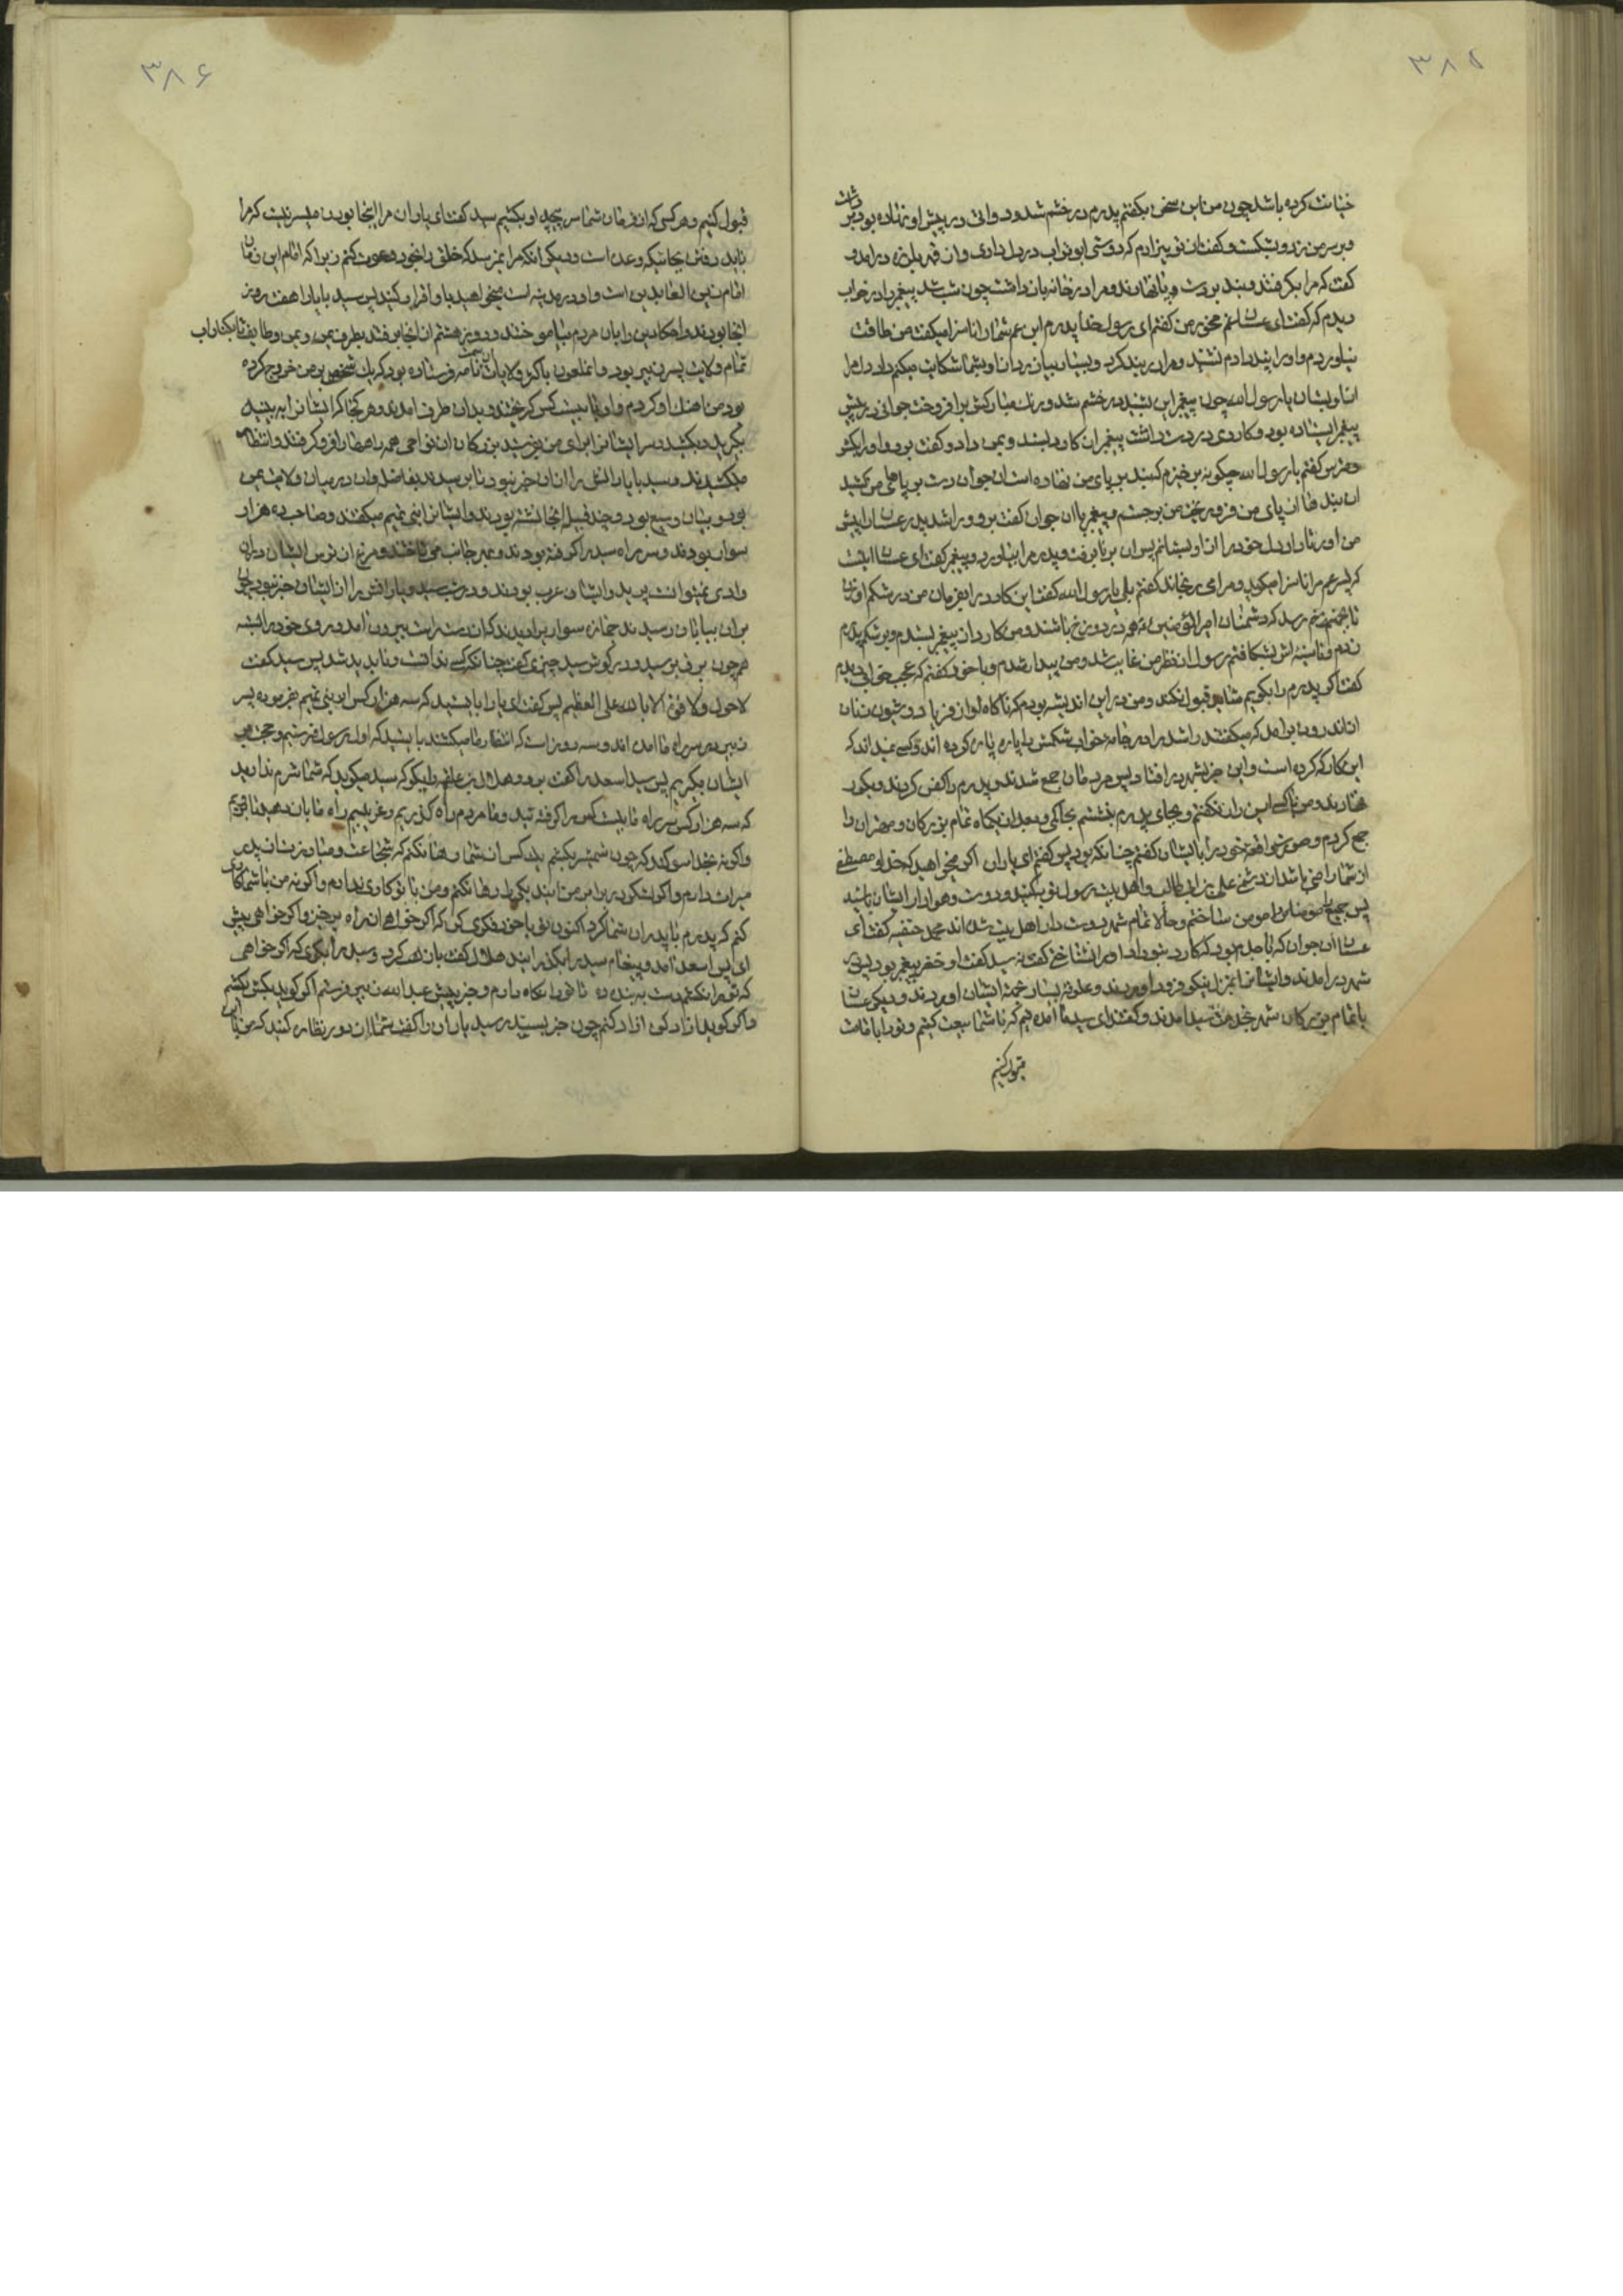 ۳۸۵
خیانت کرده باشد چون من این سخن بگفتم پدرم در خشم شد و دواتی در پیش او نهاده بود برداشت
و بر سر من زد و بشکست و گفت از تو بیزارم که دوستی ابوتراب در دل داری و از قهر بلرزه درامد و
گفت که مرا بگرفتند و بند بر دست و پا نهادند و مرا در خانه بازداشت چون شب شد پیغمبر را در خواب
دیدم که گفت ای عثمان غم مخور من گفتم ای رسول خدا پدرم ابن عم شما را ناسزا میگفت من طاقت
نیاوردم و او را پند دادم نشنید و مرا در بند کرد
از او بستان یا رسول الله چون پیغمبر این بشنید در خشم شد و رنک مبارکش برافروخت جوانی در پیش
پیغمبر ایستاده بود و کاردی در دست داشت پیغمبر ان کارد بستد و بمن داد و گفت برو او را بکش
گفتم یا رسول الله چگونه برخیزم که بند بر پای من نهاده است ان جوان دست بر پاهای من کشید
ان بندها از پای من فرو ریخت من برجستم و پیغمبر با ان جوان گفت برو و راشد پدر عثمان را پیش
من اور تا داد دل خود را از او بستانم پس ان برنا برفت و پدر مرا بیاورد و پیغمبر گفت ای عثمان اینست
که پسر عم مرا ناسزا میگوید و مرا می رنجاند گفتم بلی یا رسول الله گفت این کارد را بفرمان من در شکم او زن
تا بجهنم رسد که دشمنان امیرالمؤمنین همه در دوزخ باشند و من کارد از پیغمبر بستدم و بر شکم پدرم
زدم و تا سینه اش بشکافتم رسول از نظر من غایب شد و من بیدار شدم و با خود گفتم که عجب خوابی دیدم
کفتا اگر پدرم را بگویم شاید قبول نکند و من در این اندیشه بودم که ناگاه اواز فریاد و شیون زنان
از اندرون برامد که میگفتند راشد را در جامه خواب شکمش را پاره پاره کرده اند و کسی نمیداند که
این کار که کرده است و این خبر بشهر در افتاد پس مردمان جمع شدند و پدرم را کفن کردند و بگور
نهادند و من با کسی این راز نگفتم و بجای پدرم بنشستم بحاکمی و بعد از یکماه تمام بزرگان و مهتران را
جمع کردم و صورت واقعه خود را با ایشان گفتم چنانکه بود پس گفتم ای یاران اگر میخواهید که خدا و مصطفی
از شما راضی باشد از دشمنی علی بن ابی طالب و اهل بیت رسول توبه کنید و دوست و هوادار ایشان باشید
پس جمیع را مومن ساختم و حالا تمام شهر دوست دار اهل بیت شده اند محمد حنفیه گفت ای
عثمان ان جوان که با جدم بود که کارد بتو داد او را شناختی گفت نه سید گفت او خضر پیغمبر بود پس در
شهر درامدند و ایشان را بمنزل نیکو فرود اوردند و علوفه بسیار خدمت ایشان اوردند و دیگر عثمان
با تمام بزرگان شهر بخدمت سید امدند و گفتند ای سید ما امده ایم که با شما بیعت کنیم و تو را بامامت
قبول کنیم
۳۸۶
قبول کنیم و هر کس که از فرمان شما سر پیچد او را بکشیم سید گفت ای یاران مرا اینجا بودن میسر نیست که مرا
باید رفتن بجائیکه وعده است و دیگر انکه مرا نمیرسد که خلق را بخود دعوت کنم زیرا که امام این زمان
امام زین العابدین است و او در مدینه است میخواهید با او اقرار کنید پس سید با یاران هفت روز
انجا بودند و احکام دین را بان مردم بیاموختند و روز هشتم از انجا برفتند بطرف یمن و یمن و طایف تا بکنار اب
تمام ولایت پسر زبیر بود و ان ملعون باکثر ولایات نامه فرستاده بود که یک شخص بر من خروج کرده
بود من اهنک او کردم و او با بیست کس گریختند و بدان طرف امدند و هر کجا که ایشان را به بینید
بگیرید و بکشید و سر ایشان را برای من بفرستید بزرگان ان نواحی همه راهها را فرو گرفتند و انتظار
میکشیدند و سید با یارانش را از ان خبر نبود تا برسیدند
بود و بیابان وسیع بود و چند قبیله انجا نشسته بودند و ایشان را بنی تمیم میگفتند و صاحب ده هزار
سوار بودند و سر راه سید را گرفته بودند و بهر جانب می تاختند و مرغ از ترس ایشان در ان
وادی نمیتوانست پرید و ایشان عرب بودند و در شب سید و یارانش را از ایشان خبر نبود چون
بران بیابان رسیدند جمازه سواری را دیدند که از دست راست بیرون امد و روی خود را بسته
هم چون برق برسید و در گوش سید چیزی گفت چنانکه کسی ندانست و ناپدید شد پس سید گفت
لاحول ولا قوة الا بالله العلی العظیم پس گفت ای یاران بایستید که سه هزار کس از بنی تمیم بفرموده پسر
زبیر بر سر راه ما امده اند و سه روز است که انتظار ما میکشند بایستید که اول رسول بفرستیم و حجت بر
ایشان بگیریم پس سید اسعد را گفت برو و هلال بن علقمه را بگو که سید میگوید که شما شرم ندارید
که سه هزار کس سر راه ما بیست کس را گرفته اید و ما مردم راه گذریم و غریبیم راه ما بازدهید تا برویم
و اگر نه بخدا سوگند که چون شمشیر بکشم یک کس از شما رها نکنم که شجاعت و مبارزت از پدر
میراث دارم
کنم که پدرم با پدران شما کرد اکنون تو با خود فکری کن که اگر خواهی از راه برخیز و اگر خواهی پیش
ای پس اسعد امد و پیغام سید را بگذرانید هلال گفت باز گرد و سید را بگوی که اگر خواهی
که تو را نکشم دست به بند ده تا تو را نگاه دارم و خبر پیش عبدالله زبیر فرستم اگر گوید بکش بکشم
و اگر گوید ازاد کن ازاد کنم چون خبر بسید رسید یاران را گفت شما از دور نظاره کنید که من با این